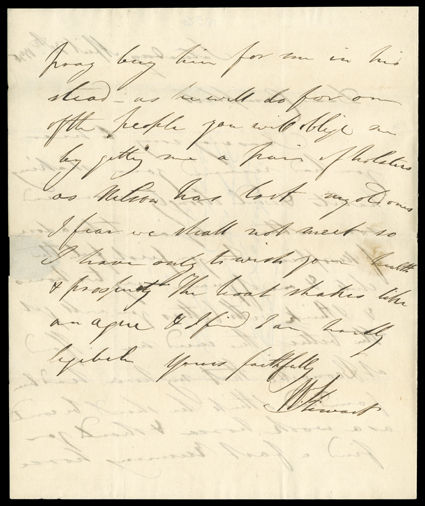 pray buy him for me in his
stead - as he will do for one
of the people you will oblige me
by getting me a pair of holsters
as Nelson has lost my old ones
I fear we shall not meet so
I have only to wish you health
& prosperity The boat shakes like
an ague & I find I am hardly
legible Yours faithfully
W Stewart